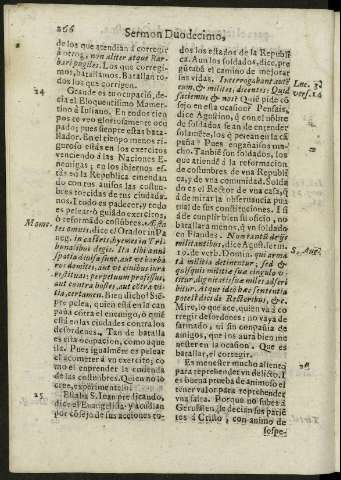 266
Sermon Duodecimo,
de los que atendian á corregir
á otros, non aliter atque Bar-
bari pugiles. Los que corregi-
mos, batallamos. Batallan to-
dos los que corrigen.
24
Grande es tu ocupació, de-
cia el Eloquentissimo Mamer-
tino á Iuliano. En todos tiem-
pos te veo gloriosamente ocu-
pado; pues siempre estás bata-
llador. En el tiempo menos ri-
guroso estás en los exercitos
venciendo á las Naciones E-
nemigas; y en los
estás en la Republica emendan
do con tus avisos las costum-
bres torcidas de tus ciudada-
nos. Y todo es padecer, y todo
es pelear; ó guiádo exercitos,
ó reformádo costũbres.
Mame.
dice el Orador in Pa-
neg. in castris, hyemes in Tri-
bunalibus degis. Ita tibi anni
spatia divisa sunt, aut vt barba
ros domites, aut vt civibus iura
restituas: perpetuum professus,
aut contra hostes, aut cõtra vi-
tia, certamen. Bien dicho! Siem-
pre pelea, quien está en la cam
paña contra el enemigo, ó quien
está en las ciudades contra los
desordenes. Tan de batalla
es esta ocupacion, como aque
lla. Pues igualmente es pelear
el acometer á vn exercito, co-
mo el emprender la emienda
de las costumbres. Quien no lo
cree, experimentelo!
25
Estaba S. Iuan predicando,
dice el Evangelista y acudian
por cósejo de sus acciones to-
dos los estados de la Republi
ca. Aun los soldados, dice, pre
gũtabã el camino de mejorar
sus vidas. Interrogabant autẽ
eum, & milites, dicentes: Quid
faciemus & nos?
Luc. 3.
vers. 14
Qué pide có
sejo en esta ocasion? Pensais,
dice Agustino, q̃ con el nóbre
de soldados se an de entender
solamẽte, los q̃ pelean en la cã
paña? Pues engañaisos mu-
cho. Tambiẽ son soldados, los
que atiendẽ á la reformacion
de costumbres de vna Republi
ca, y de vna comunidad. Solda
do es el Rector de vna casa, q̃
á de mirar la observancia pun
tual de sus constituciones. I si
á de cumplir bien su oficio, no
batallará menos, q̃ vn soldado
en Flandes. Non tantũ de ijs
militantibus, dice Agust. sent.
10. de verb. Domin.
S. Aug.
qui arma
tâ militia detinentur; sed &
quisquis militiæ suæ cingulo v-
titur, dignitatis suæ miles adscri
bitur. Atque ideò hæc sententia
potest dici de Rectoribus, &c.
Mire, lo que ace, quien vá á co
rregir desordenes: no vaya de
sarmado, ni sin compañia de
amigos, que los aurá bien me
nester en la ocasion. Que es
batalla, el corregir.
26
Es menester mucho aliento
para reprehender vn delicto. I
es buena prueba de animoso el
tener valor para reprehender
vna falta. Porque no subes á
Gerusalen, le decian sus pariẽ
tes á Cristo, con animo de
sospe-